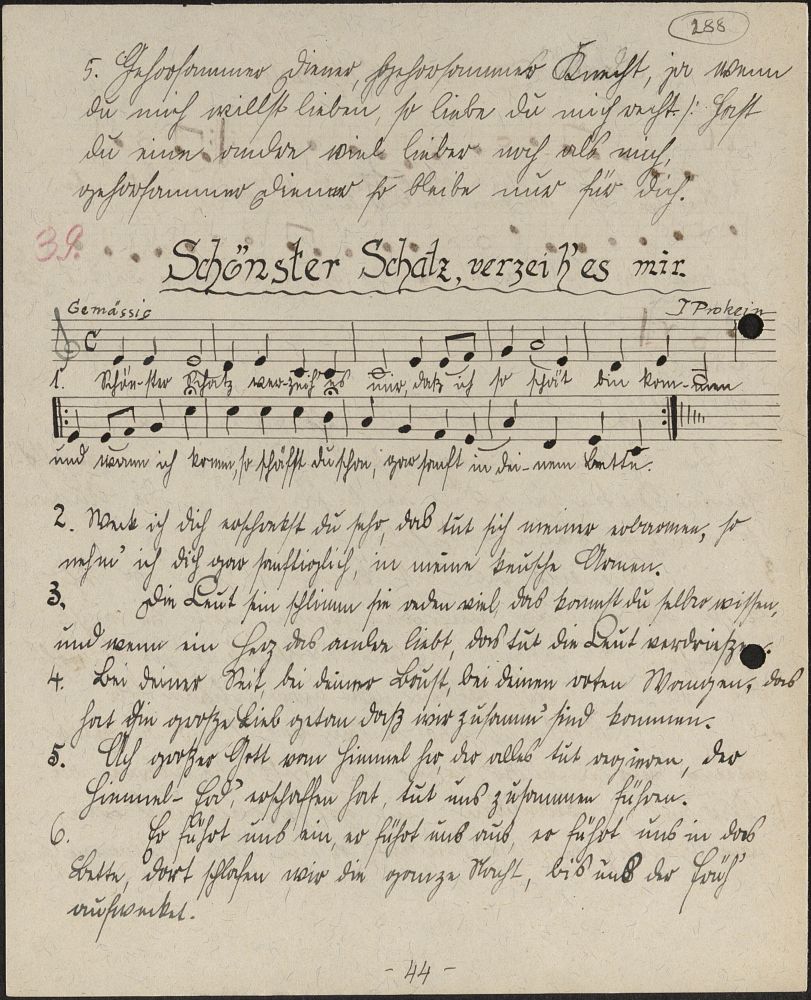 288
5. Gehorsammer Diener, gehorsammer Knecht, ja wenn
du mich willst lieben, so liebe du mich recht /: hast
du eine andre viel lieber noch als mich,
gehorsammer Diener so bleibe nur für dich.
39.
Schönster Schatz, verzeih' es mir.
Gemässig J Prokein
1. Schön-ster Schatz ver-zeih es mir, daß ich so spät bin kom-men
und wann ich komm, so schläfst du schon, gar sanft in dei-nem Bette.
2. Weck ich dich erschrekst du sehr, das tut sich meiner erbarmen, so
nehm' ich dich gar sanftiglich, in meine keusche Armen.
3. Die Leut sein schlimm sie reden viel, das kannst du selber wissen,
und wenn ein Herz das andre liebt, das tut die Leut verdrießen.
4. Bei deiner Seit, bei deiner Brust, bei deinen roten Wangen, das
hat die große Lieb getan daß wir zusamm' sind kommen.
5. Ach großer Gott vom Himmel her, der alles tut regieren, der
Himmel-Erd', erschaffen hat, tut uns zusammen führen.
6. Er führt uns ein, er führt uns aus, er führt uns in das
Bette, dort schlafen wir die ganze Nacht, bis uns der Früh'
aufwecket.
- 44 -